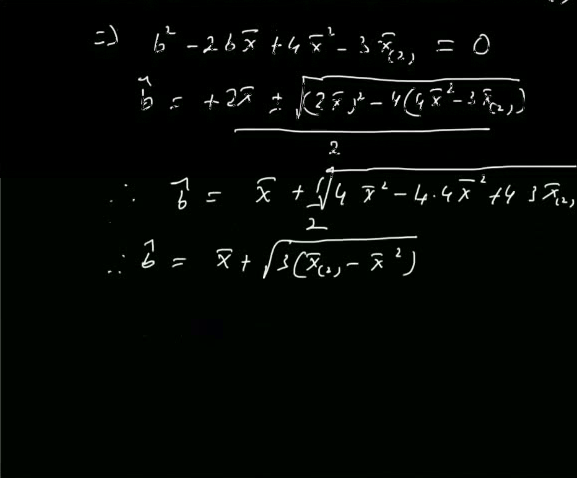 ⇒ b² - 2bx̄ + 4x̄² - 3x̄₍₂₎ = 0
b̂ = +2x̄ ± √((2x̄)² - 4(4x̄² - 3x̄₍₂₎)) / 2
∴ b̂ = x̄ + 1/2 √(4x̄² - 4·4x̄² + 4 3x̄₍₂₎
∴ b̂ = x̄ + √(3(x̄₍₂₎ - x̄²))